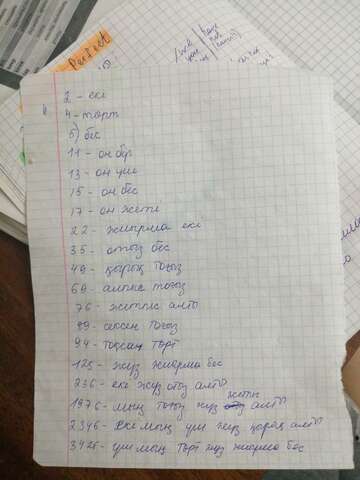 Perfect
2 - екі
4 - төрт
5) бес
11 - он бір
13 - он үш
15 - он бес
17 - он жеті
22 - жиырма екі
35 - отыз бес
49 - қырық тоғыз
69 - алпыс тоғыз
76 - жетпіс алты
89 - сексен тоғыз
94 - тоқсан төрт
125 - жүз жиырма бес
236 - екі жүз отыз алты
1976 - мың тоғыз жүз жетпіс алты
2346 - екі мың үш жүз қырық алты
3425 - үш мың төрт жүз жиырма бес